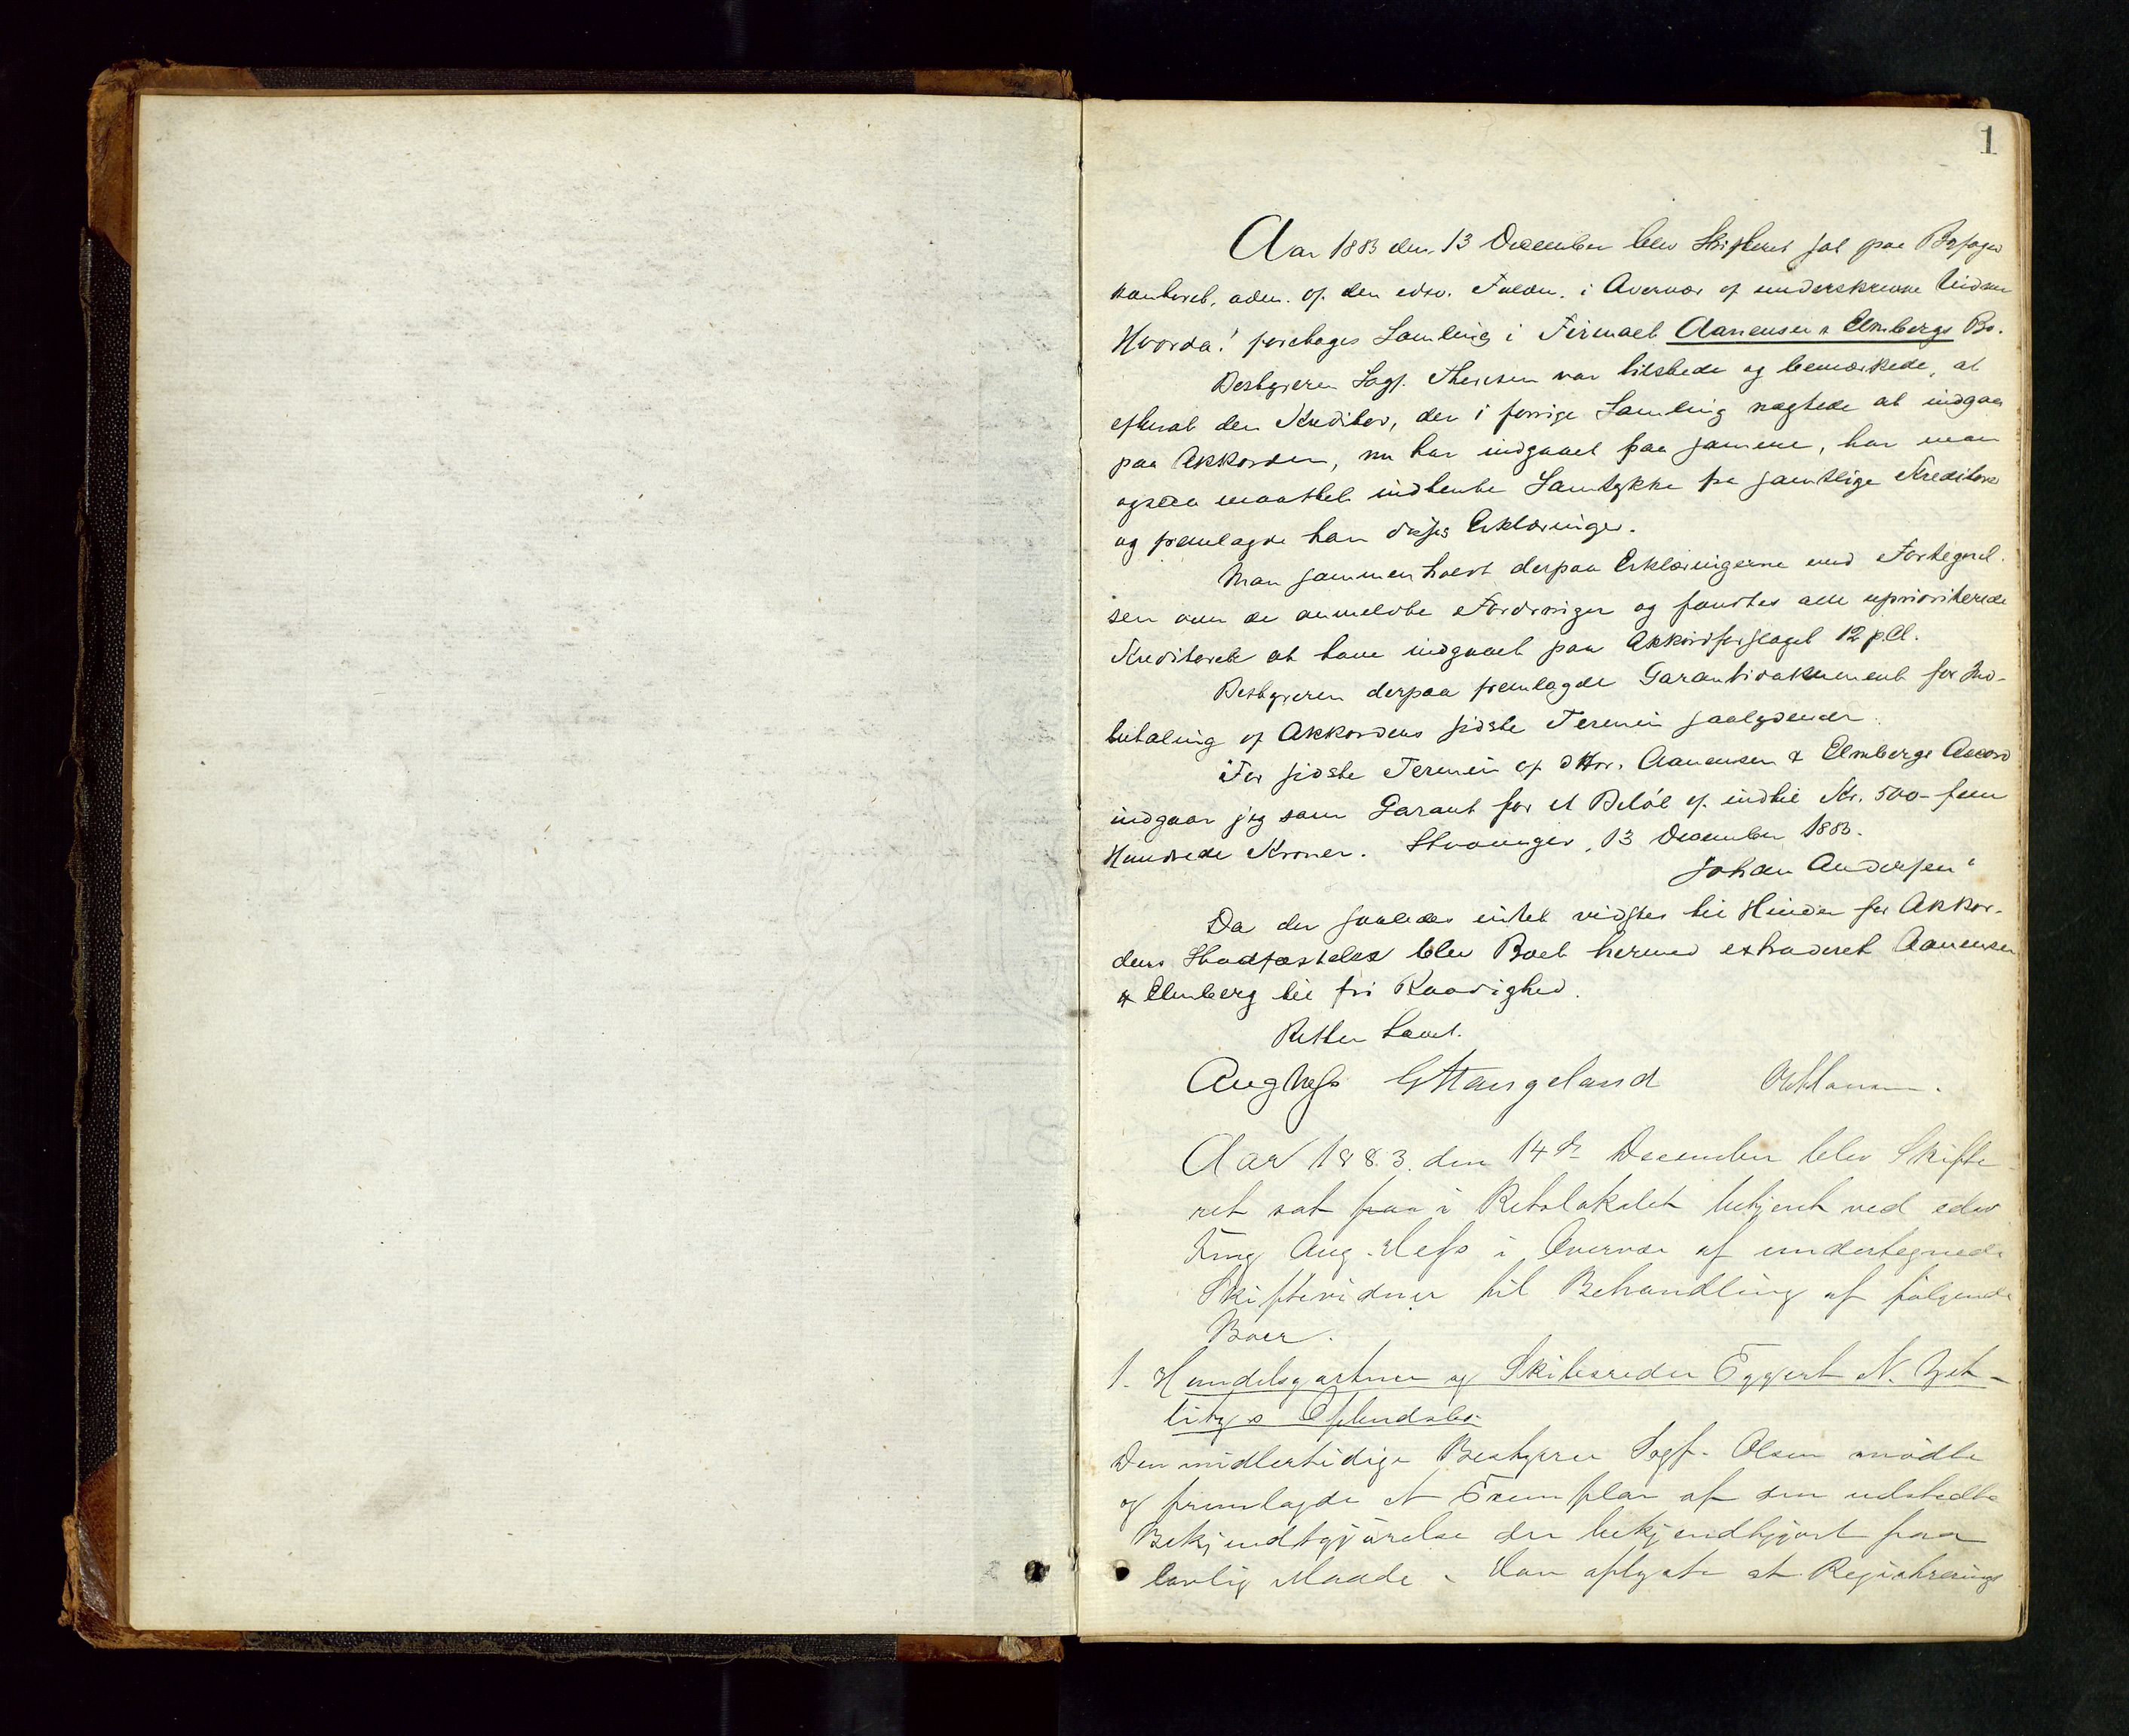 1
Aar 1883 den 13 December blev Skifteret sat paa Byfoged
kontoret, adm. af den edsv. Fuldm. i Overvær af underskrevne Vidner
Hvorda! foretoges Samling i Firmaet Aanensen & Elmbergs Bo.
Bestyreren Sagf. Thersen var tilstede og bemærkede, at
efterat den Kreditor, der i forrige Samling nægtede at indgaa
paa Akkorden, nu har indgaaet paa samme, har man
ogsaa maattet indhente Samtykke fra samtlige Kreditorer
og fremlagde han disses Erklæringer.
Man sammenholdt derpaa Erklæringerne med Fortegnel-
sen over de anmeldte Fordringer og fandtes alle uprioriterede
Kreditorer at have indgaaet paa Akkordforslaget 12 p.Ct.
Bestyreren derpaa fremlagde Garantidokument for Ind-
betaling af Akkordens sidste Termin saalydende:
"For sidste Termin af DHrr. Aanensen & Elmbergs Accord
indgaar jeg som Garant for et Beløb af indtil Kr. 500 - fem
Hundrede Kroner. Stavanger, 13 December 1883.
Johan Andersen"
Da der saaledes intet vidstes til Hinder for Akkor-
dens Stadfæstelse blev Boet hermed extraderet Aanensen
& Elmberg til fri Raadighed.
Retten hævet.
Aug Hess G Stangeland
Aar 1883. den 14de December blev Skifte
ret sat paa i Retslokalet betjent ved edsv
Fmg Aug. Hess i Overvær af undertegnede
Skiftevidner til Behandling af følgende
Boer.
1. Handelsgartner og Skibsreder Eggert N. Zet-
litz's Opbudsbo
Den midlertidige Bestyrer Sagf. Olsen mødte
og fremlagde et Exemplar af den udstedte
Bekjendtgjørelse der bekjendtgjort paa
lovlig Maade. Han oplyste at Registrerings